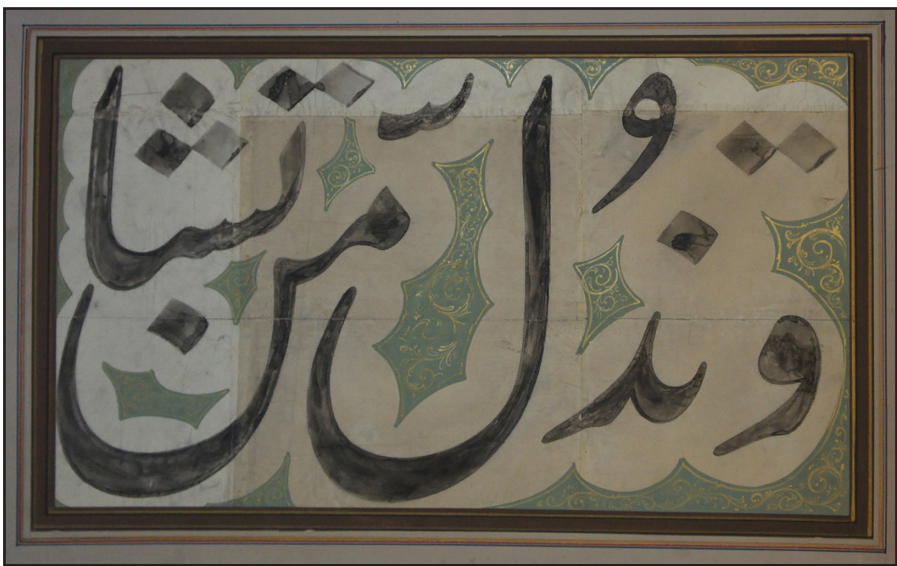 وتُذلّ من تشا